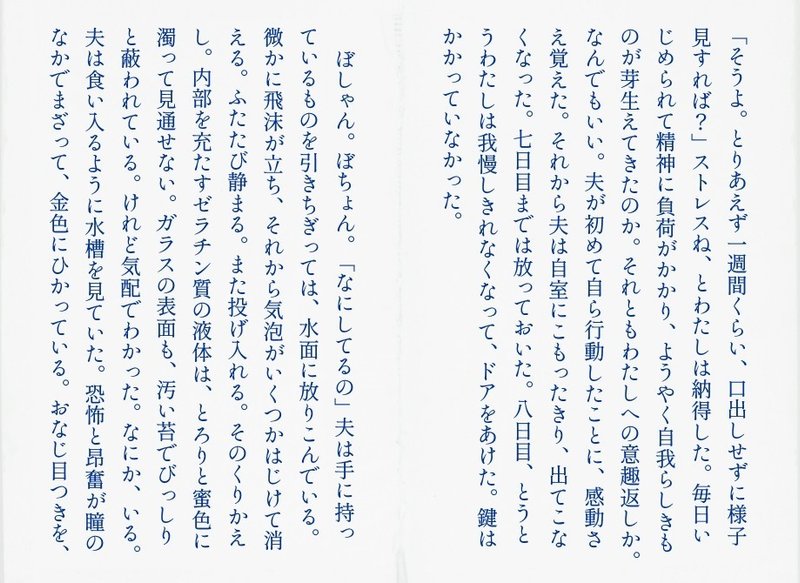 「そうよ。とりあえず一週間くらい、口出しせずに様子
見すれば？」ストレスね、とわたしは納得した。毎日い
じめられて精神に負荷がかかり、ようやく自我らしきも
のが芽生えてきたのか。それともわたしへの意趣返しか。
なんでもいい。夫が初めて自ら行動したことに、感動さ
え覚えた。それから夫は自室にこもったきり、出てこな
くなった。七日目までは放っておいた。八日目、とうと
うわたしは我慢しきれなくなって、ドアをあけた。鍵は
かかっていなかった。
ぼしゃん。ぼちょん。「なにしてるの」夫は手に持っ
ているものを引きちぎっては、水面に放りこんでいる。
微かに飛沫が立ち、それから気泡がいくつかはじけて消
える。ふたたび静まる。また投げ入れる。そのくりかえ
し。内部を充たすゼラチン質の液体は、とろりと蜜色に
濁って見通せない。ガラスの表面も、汚い苔でびっしり
と蔽われている。けれど気配でわかった。なにか、いる。
夫は食い入るように水槽を見ていた。恐怖と昂奮が瞳の
なかでまざって、金色にひかっている。おなじ目つきを、